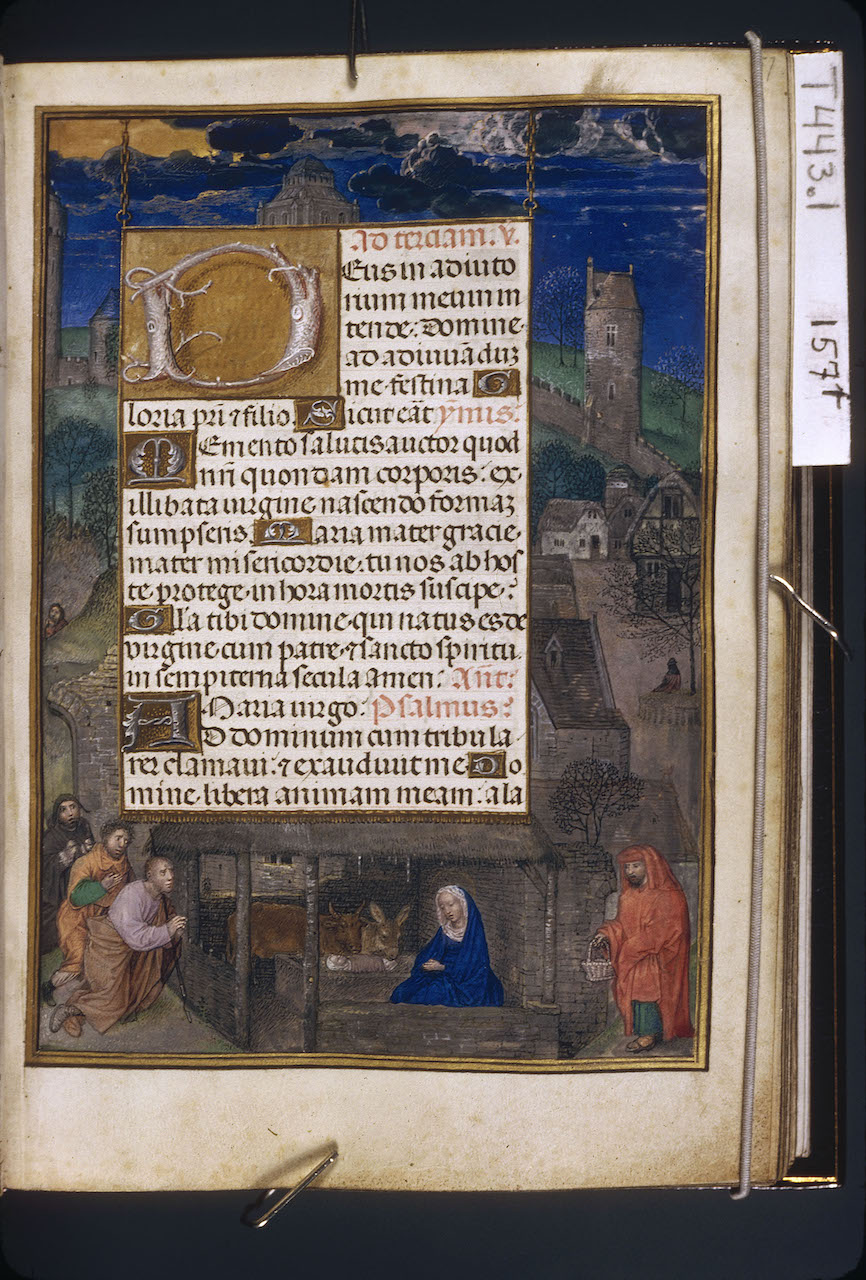 Ad terciam. v.
Deus in adiuto
rium meum in
tende. Domine
ad adiuuādūꝫ
me festina G
loria pr̄i ⁊ filio. Sicut erāt ymnis.
Memento salutis auctor quod
nr̄i quondam corporis. ex
illibata uirgine nascendo formaꝫ
sumpseris. Maria mater gracie
mater misericordie. tu nos ab hos
te protege. in hora mortis suscipe.
Gl̄a tibi domine. qui natus es de
uirgine cum patre. ⁊ sancto spiritu
in sempiterna secula amen. Ant.
Maria uirgo. Psalmus.
AD dominum cum tribula
rer clamaui. ⁊ exaudiuit me Do
mine. libera animam meam. a la
T443.1 157r